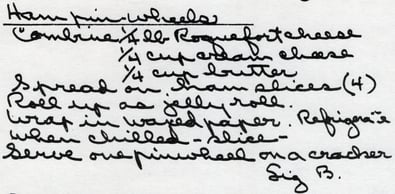 Ham pin-wheels
Combine 1/4 lb Roquefort cheese
1/4 cup cream cheese
1/4 cup butter
Spread on ham slices (4)
Roll up as jelly roll.
Wrap in waxed paper. Refrigerate
when chilled - slice -
Serve one pinwheel on a cracker
Sig B.